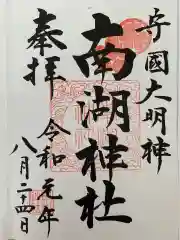 与國大明神
南湖神社
奉拝
令和元年
八月二十四日